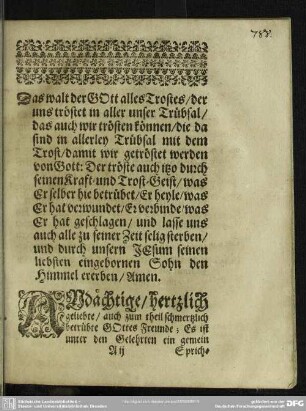 788.
Das walt der GOtt alles Trostes/der
uns tröstet in aller unser Trübsal/
das auch wir trösten können/die da
sind in allerley Trübsal mit dem
Trost/damit wir getröstet werden
von Gott: Der tröste auch itzo durch
seinen Kraft-und Trost-Geist/was
Er selber hie betrübet/Er heyle/was
Er hat verwundet/Er verbinde/was
Er hat geschlagen/und lasse uns
auch alle zu seiner Zeit selig sterben/
und durch unsern JEsum seinen
liebsten eingebornen Sohn den
Himmel ererben/Amen.
ANdächtige/hertzlich
geliebte/auch zum theil schmertzlich
betrübte GOttes Freunde; Es ist
unter den Gelehrten ein gemein
A ij Sprich-